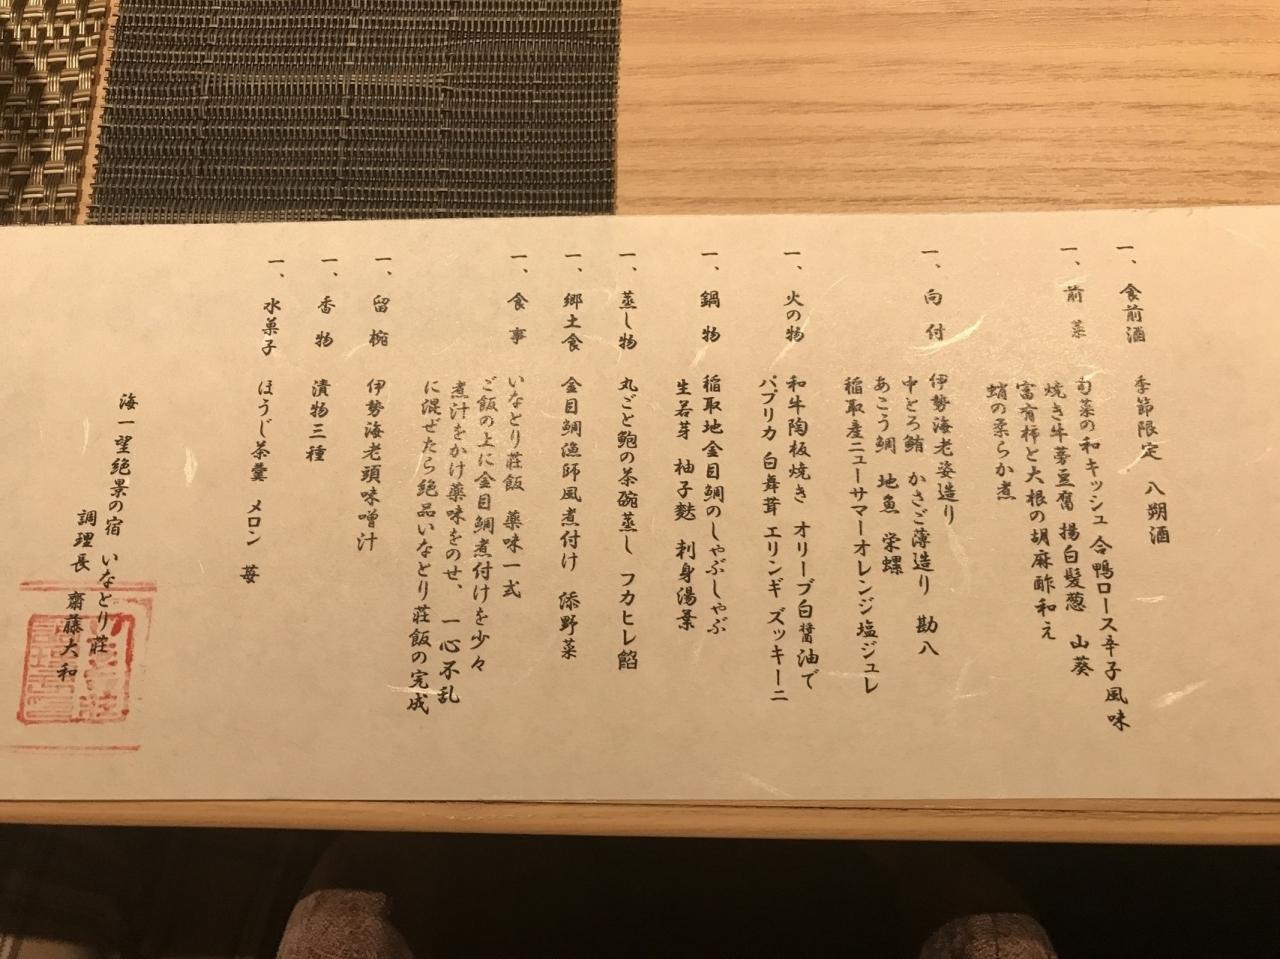 一、食前酒 季節限定 八朔酒
一、前菜 旬菜の和キッシュ 合鴨ロース辛子風味
焼き牛蒡豆腐 揚白髪葱 山葵
富有柿と大根の胡麻酢和え
蛸の柔らか煮
一、向付 伊勢海老姿造り
中とろ鮪 かさご薄造り 勘八
あこう鯛 地魚 栄螺
稲取産ニューサマーオレンジ塩ジュレ
一、火の物 和牛陶板焼き オリーブ白醤油で
パプリカ 白舞茸 エリンギ ズッキーニ
一、鍋物 稲取地金目鯛のしゃぶしゃぶ
生若芽 柚子麩 刺身湯葉
一、蒸し物 丸ごと鮑の茶碗蒸し フカヒレ餡
一、郷土食 金目鯛漁師風煮付け 添野菜
一、食事 いなとり荘飯 薬味一式
ご飯の上に金目鯛煮付けを少々
煮汁をかけ薬味をのせ、一心不乱
に混ぜたら絶品いなとり荘飯の完成
一、留椀 伊勢海老頭味噌汁
一、香物 漬物三種
一、水菓子 ほうじ茶羹 メロン 苺
海一望絶景の宿 いなとり荘
調理長 齋藤大和